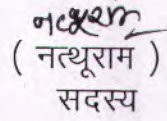 नत्थूराम
( नत्थूराम )
सदस्य